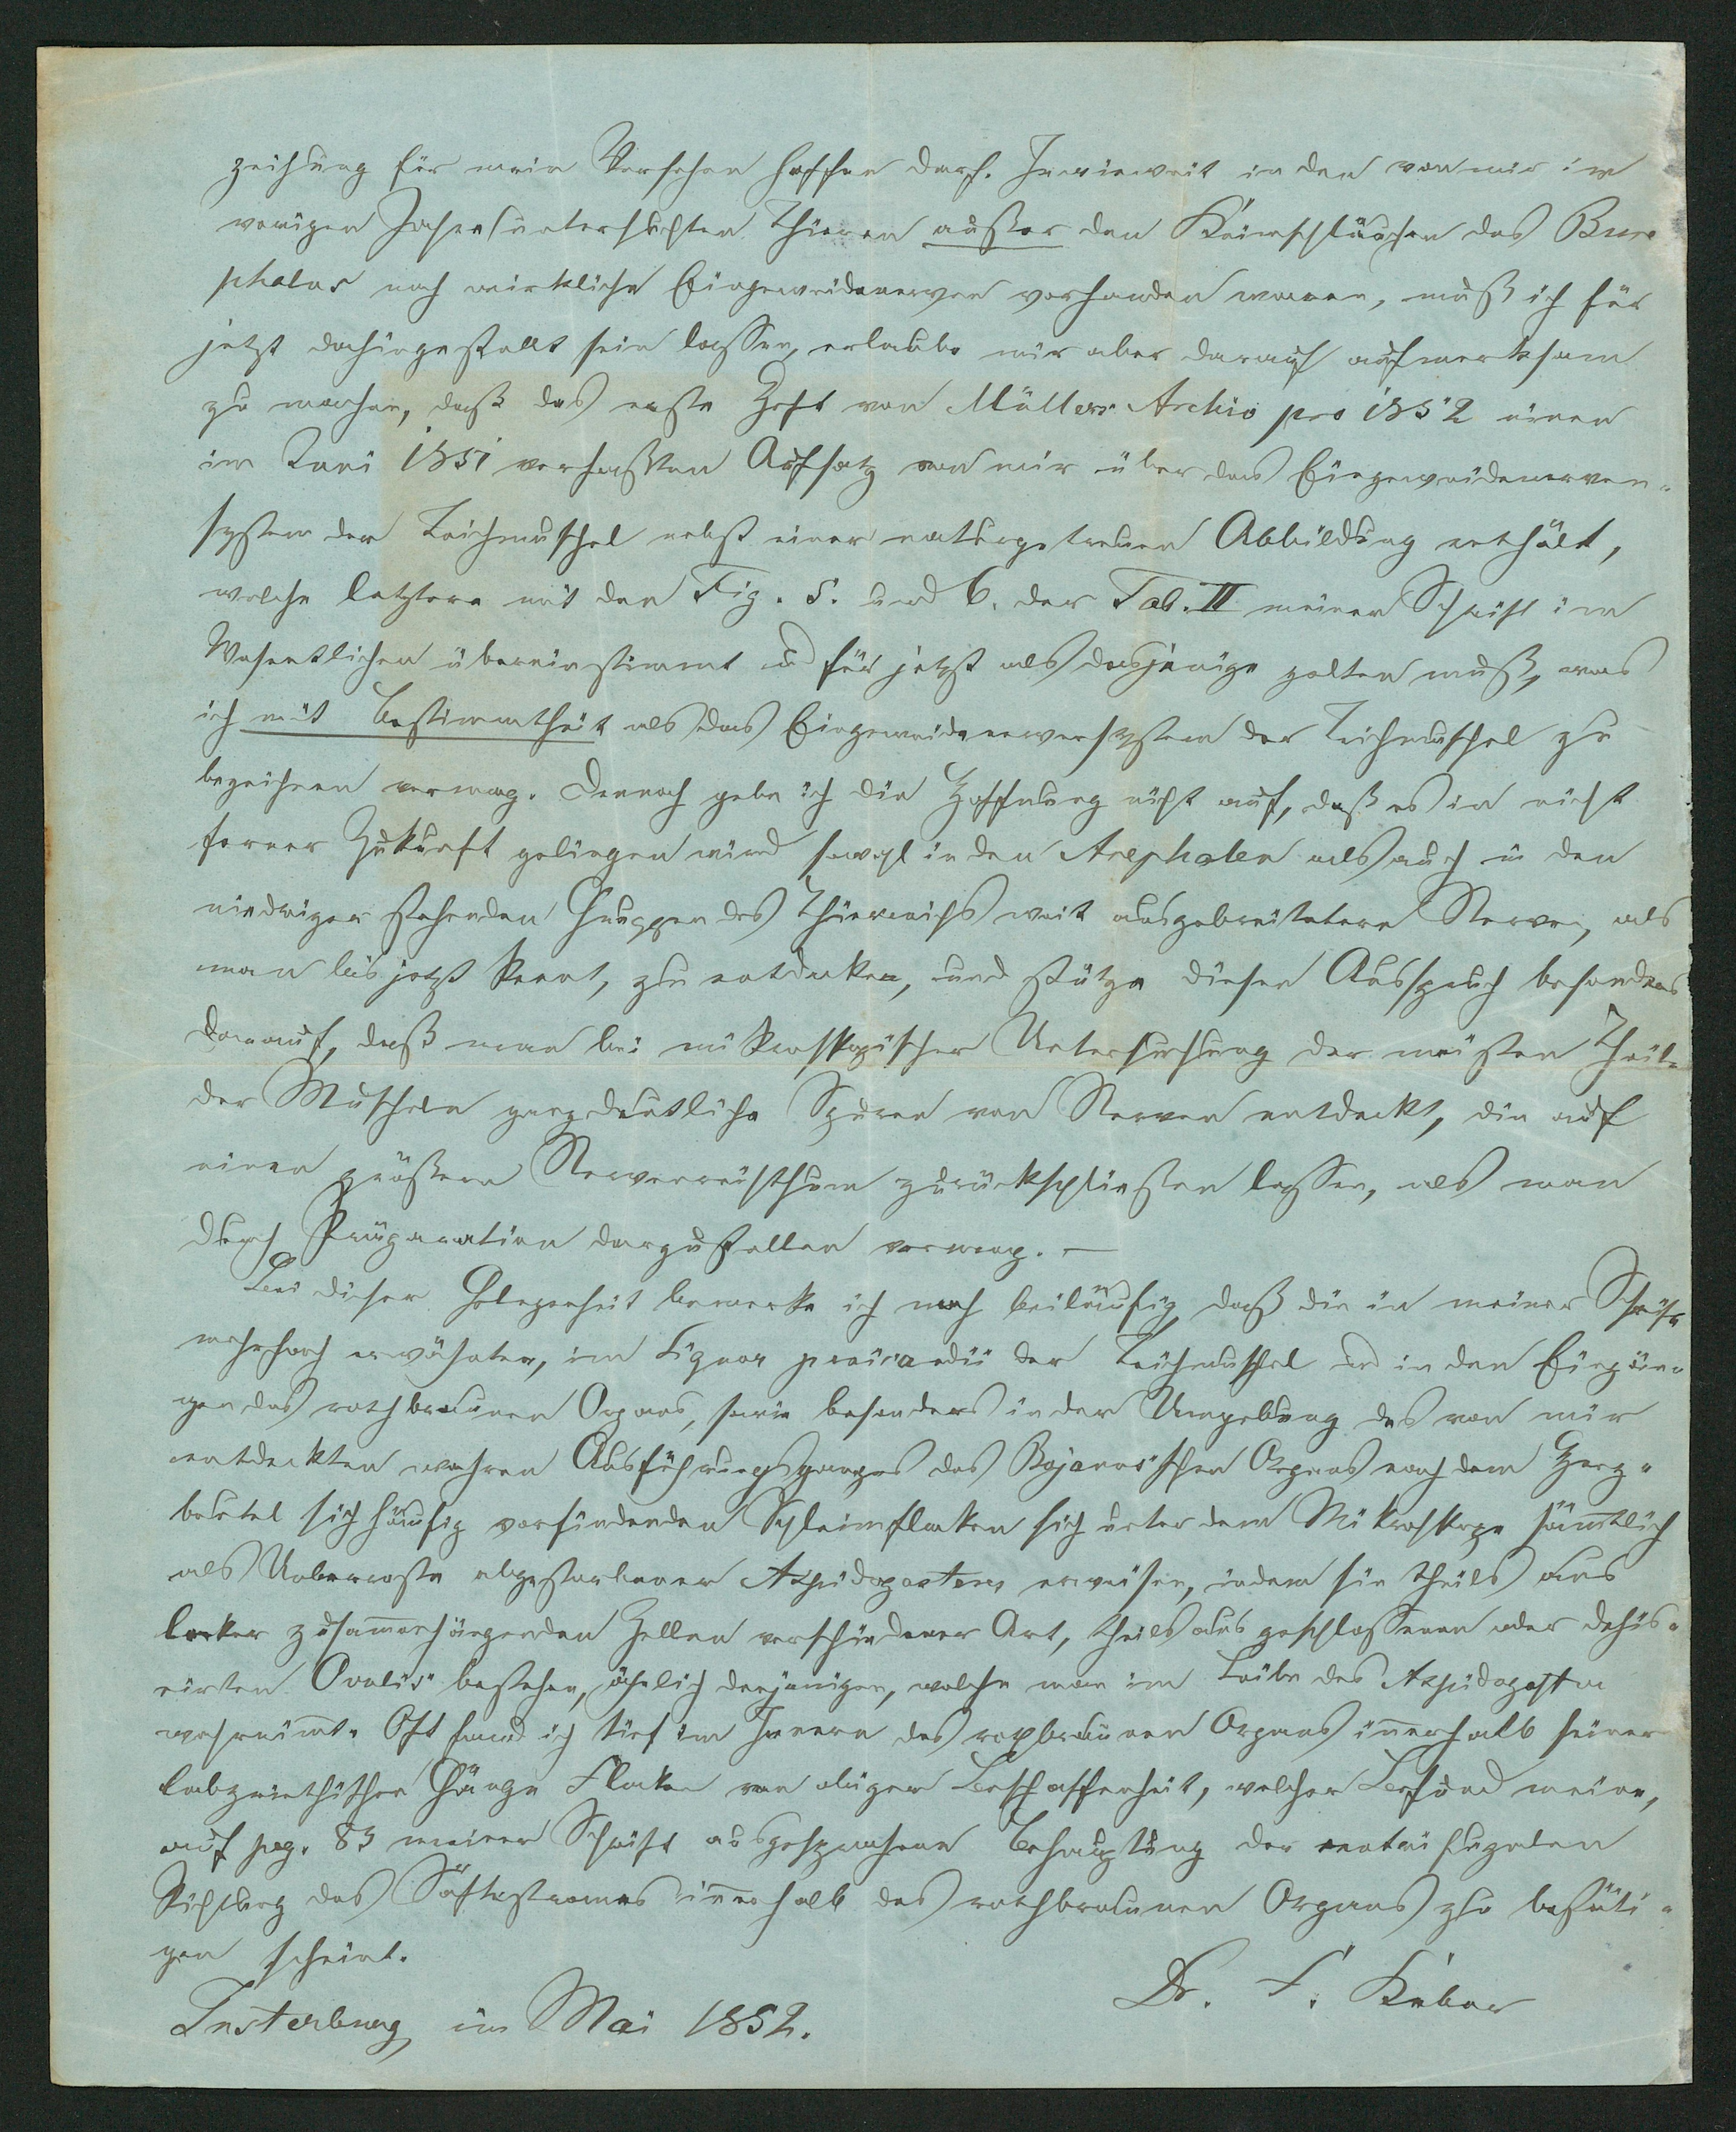 zeihung für mein Versehen hoffen darf. Inwieweit in den von mir im
vorigen Jahre untersuchten Thieren außer den Keimschläuchen des Buce
phalus noch wirkliche Eingeweidenerven vorhanden waren, muß ich für
jetzt dahingestellt sein lassen, erlaube mir aber darauf aufmerksam
zu machen, daß das erste Heft von Müllers Archiv pro 1852 einen
im Juni 1851 verfaßten Aufsatz von mir über das Eingeweidenerven-
system der Teichmuschel nebst einer naturgetreuen Abbildung enthält,
welche letztere mit den Fig. 5. und 6. der Tab. II meiner Schrift im
Wesentlichen übereinstimmt u für jetzt als dasjenige gelten muß, was
ich mit Bestimmtheit als das Eingeweidenervensystem der Teichmuschel zu
bezeichnen vermag. Dennoch gebe ich die Hoffnung nicht auf, daß es in nicht
ferner Zukunft gelingen wird sowohl in den Acephalen als auch in den
niedriger stehenden Gruppen des Thierreichs weit ausgebreitetere Nerven, als
man bis jetzt kennt, zu entdecken, und stütze diesen Ausspruch besonders
darauf, daß man bei mikroskopischer Untersuchung der meisten Theile
der Muscheln ganz deutliche Spuren von Nerven entdeckt, die auf
einen größern Nervenreichthum zurückschließen lassen, als man
durch Präparation darzustellen vermag. —
Bei dieser Gelegenheit bemerke ich noch beiläufig, daß die in meiner Schrift
mehrfach erwähnten, im Liquor pericardii der Teichmuschel u in den Eingän-
gen des rothbraunen Organs, sowie besonders in der Umgebung des von mir
entdeckten wahren Ausführungsganges des Bojanus'schen Organs nach dem Herz-
beutel sich häufig vorfindenden Schleimflocken sich unter dem Mikroskope sämtlich
als Ueberreste abgestorbener Aspidogaster erweisen, indem sie theils aus
locker zusammenhängenden Zellen verschiedener Art, theils aus geschlossenen oder dehis-
cirten Ovulis bestehen, ähnlich denjenigen, welche man im Leibe des Aspidogaster
wahrnimt. Oft fand ich tief im Innern des rothbraunen Organs innerhalb seiner
labyrinthischen Gänge Flocken von obiger Beschaffenheit, welcher Befund meine,
auf pag. 83 meiner Schrift ausgesprochene Behauptung der centrifugalen
Richtung des Säftestromes innerhalb des rothbraunen Organs zu bestäti-
gen scheint.
Dr. F. Keber
Insterburg, im Mai 1852.